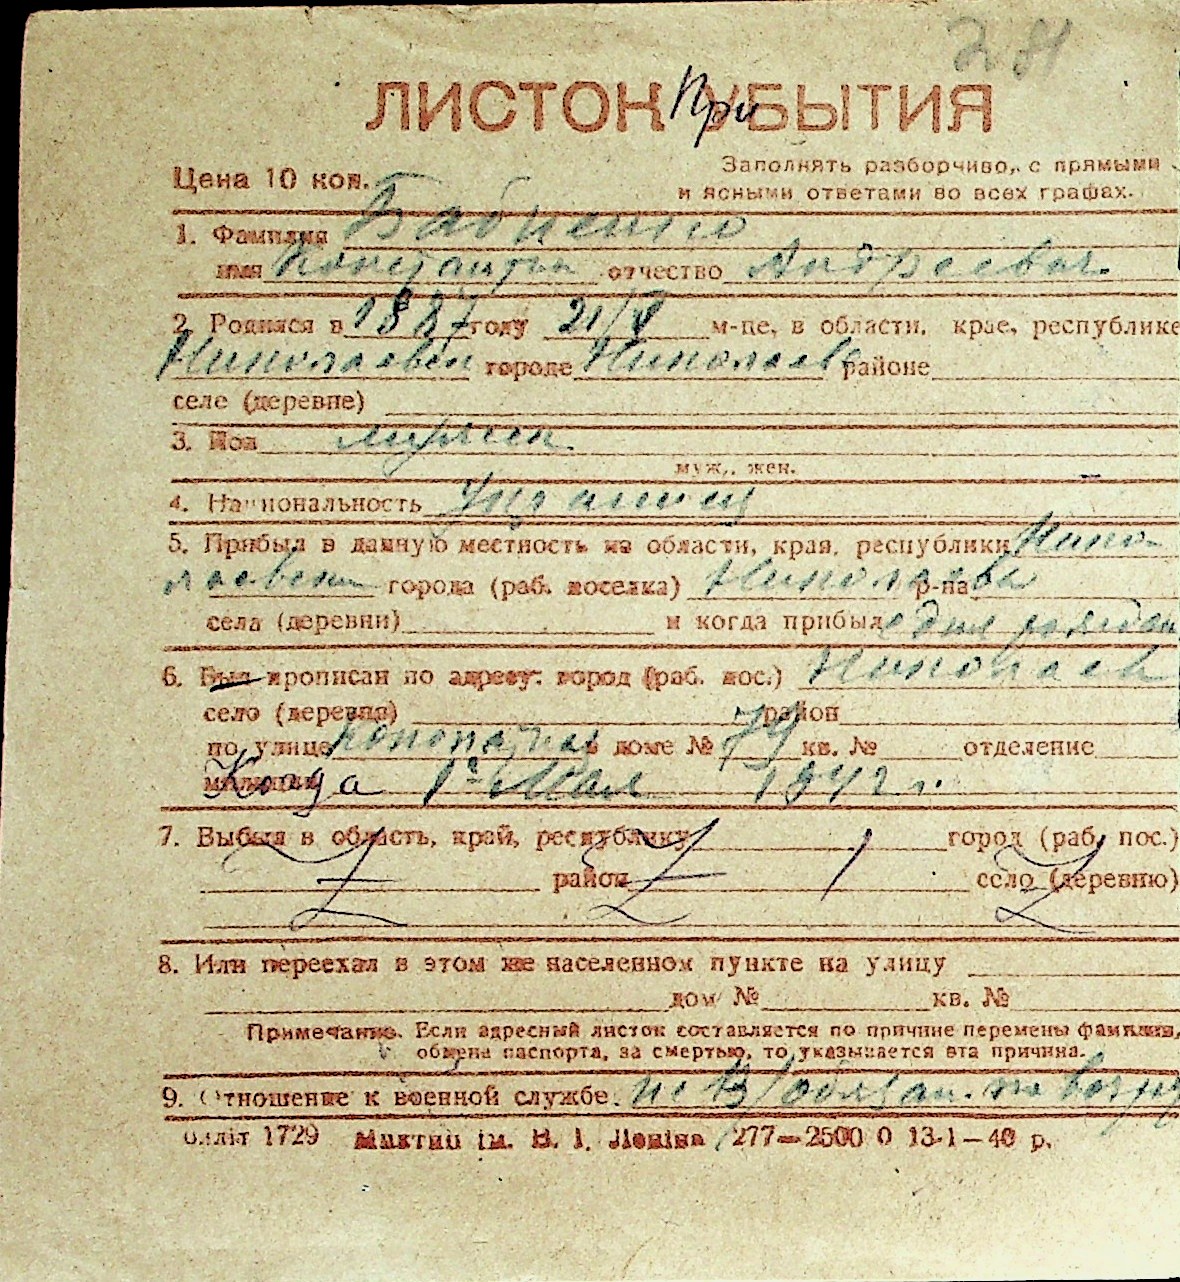 281
ЛИСТОК При УБЫТИЯ
Цена 10 коп.
Заполнять разборчиво, с прямыми
и ясными ответами во всех графах.
1. Фамилия Бабченко
имя Константин отчество Андреевич.
2. Родился в 1887 году 21/V м-це, в области, крае, республике
Николаевск городе Николаев районе
селе (деревне)
3. Пол мужск.
муж., жен.
4. Национальность Украинец
5. Прибыл в данную местность из области, края, республики Нико-
лаевск города (раб. поселка) Николаева р-на
села (деревни) и когда прибыл с дня рождан
6. Был прописан по адресу: город (раб. пос.) Николаев
село (деревня) район
по улице в доме № 74 кв. № отделение
милиции Когда 1го Мая 1942 г.
7. Выбыл в область, край, республику город (раб. пос.)
район село (деревню)
8. Или переехал в этом же населенном пункте на улицу
дом № кв. №
Примечание. Если адресный листок составляется по причине перемены фамилии,
обмена паспорта, за смертью, то указывается эта причина.
9. Отношение к военной службе. не в/обязан. по возр
1729 ім. В. І. Леніна 277—2500 0 13-1—40 р.